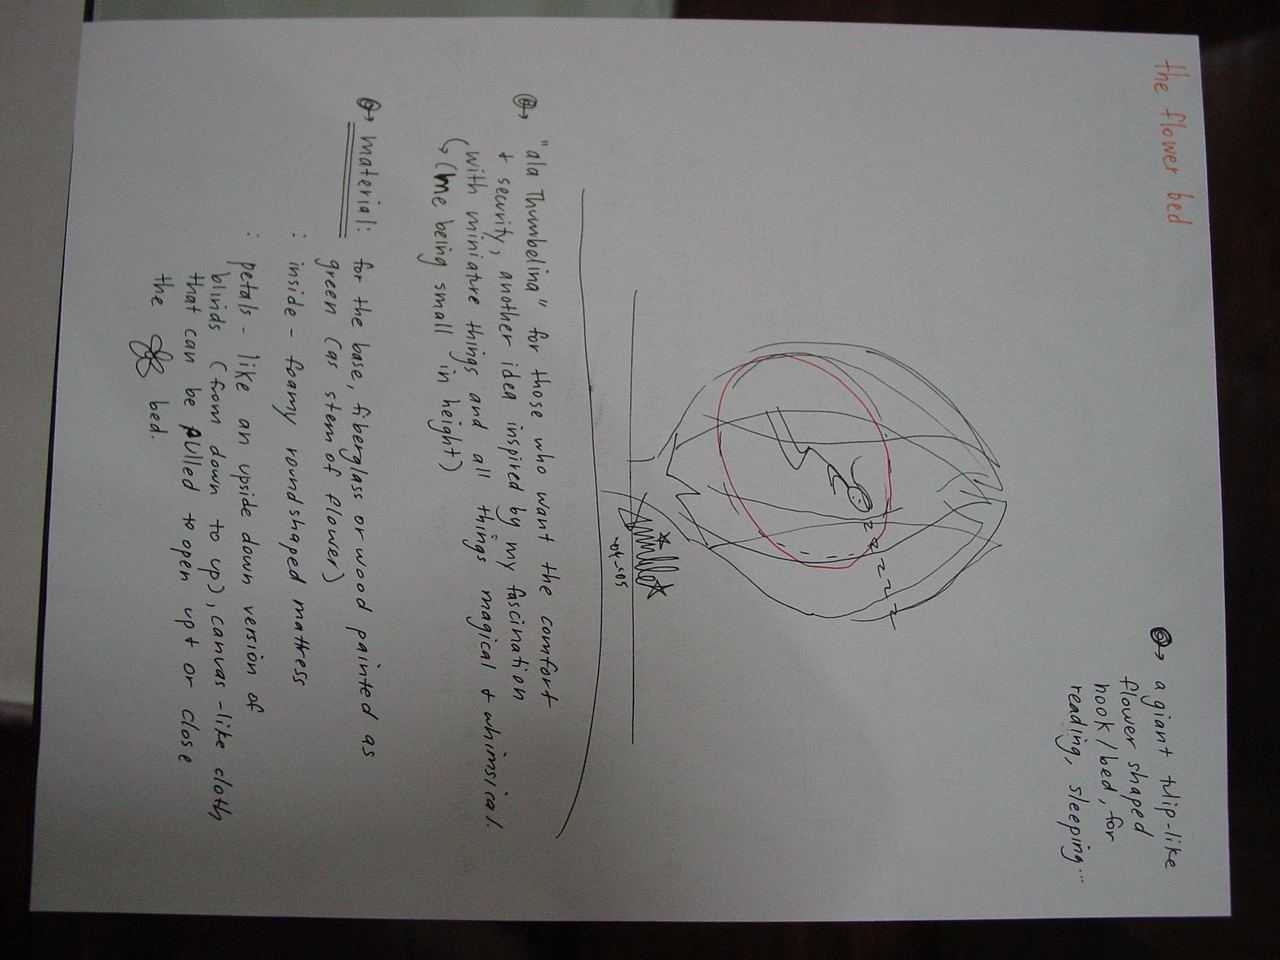 the flower bed
a giant tulip-like
flower shaped
nook/bed, for
reading, sleeping...
z z z z z
-04-05
"ala Thumbelina" for those who want the comfort
+ security, another idea inspired by my fascination
with miniature things and all things magical + whimsical.
(me being small in height)
material: for the base, fiberglass or wood painted as
green (as stem of flower)
: inside - foamy round shaped mattress
: petals - like an upside down version of
blinds (from down to up), canvas-like cloth
that can be pulled to open up + or close
the bed.